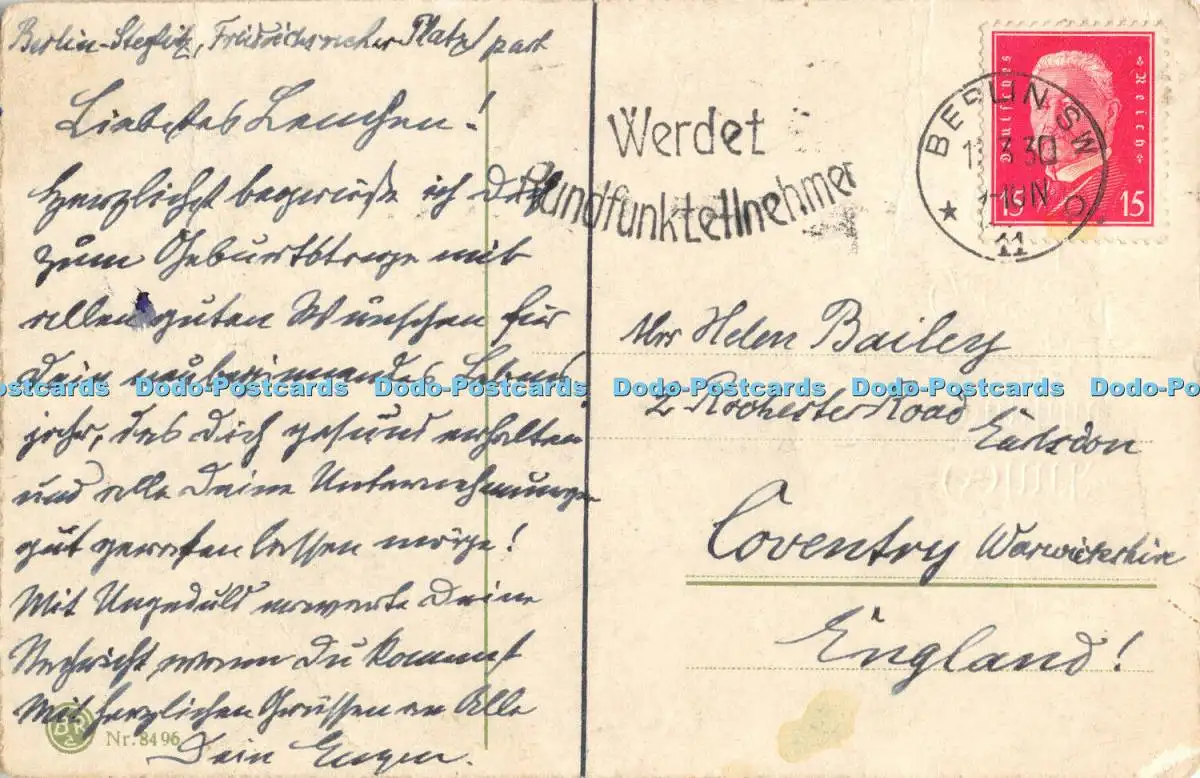 Berlin-Steglitz, Friedrichsruher Platz part
Liebstes Lenchen!
Herzlichst begrüße ich Dich
zum Geburtstage mit
allen guten Wünschen für
Dein neubeginnendes Lebens
jahr, das Dich gesund erhalten
und alle Deine Unternehmungen
gut geraten lassen möge!
Mit Ungeduld erwarte Deine
Nachricht wann Du kommst
Mit herzlichen Grüssen an Alle
Dein Eugen.
Nr. 8496
Werdet
Rundfunkteilnehmer
BERLIN SW
3 30
11
Deutsches Reich
15 15
Mrs Helen Bailey
2 Rochester Road
Earlsdon
Coventry Warwickshire
England!
Dodo-Postcards Dodo-Postcards Dodo-Postcards Dodo-Postcards Dodo-Postcards